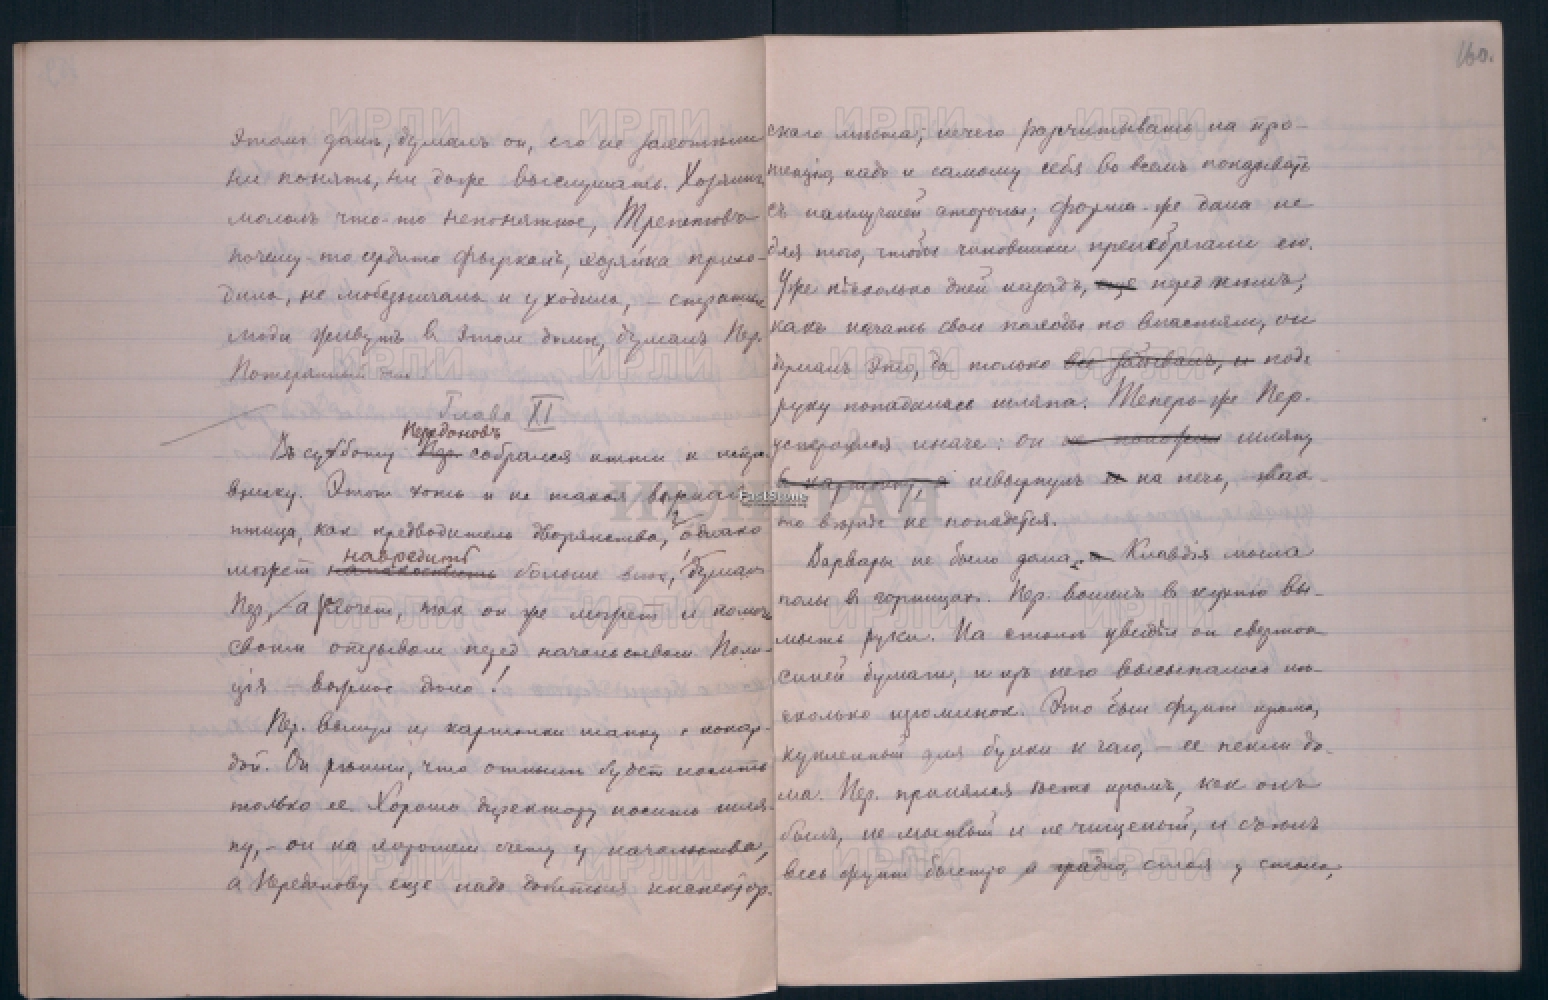 160.
этомъ домѣ, думалъ он, его не захотѣли
ни понять, ни даже выслушать. Хозяинъ
мололъ что-то непонятное, Трепетовъ
почему-то сердито фыркалъ, хозяйка прихо-
дила, не любезничала и уходила, – странные
люди живутъ в этом домѣ, думалъ Пер.
Потерянный день
Глава XI
Передоновъ
Въ субботу Пер. собрался итти к испра-
внику. Этот хоть и не такая важная
птица, как предводитель дворянства, однако
навредить
может напакостить больше всех, думал
Пер., а захочет, так он же может и помочь
своим отзывом перед начальством. Поли-
ція – важное дѣло!
Пер. вынул из картонки шапку с кокар-
дой. Он рѣшил, что отнынѣ будет носить
только ее. Хорошо директору носить шля-
пу, – он на хорошем счету у начальства,
а Передонову еще надо добиться инспектор-
скаго мѣста; нечего расчитывать на про-
текцію, надо и самому себя во всемъ показывать
съ наилучшей стороны; форма-же дана не
для того, чтобы чиновники пренебрегали ею.
Уже нѣсколько дней назадъ, еще перед тѣмъ,
какъ начать свои походы по властям, он
думалъ это, да только все забывалъ, и под
руку попадалась шляпа. Теперь-же Пер.
устроился иначе: он не положил шляпу
в картонку, а швырнулъ ее на печь, – так-
то вѣрнѣе не попадется.
Варвары не было дома, а Клавдія мыла
полы в горницах. Пер. вошелъ в кухню вы-
мыть руки. На столѣ увидѣл он сверток
синей бумаги, и изъ него высыпалось нѣ-
сколько изюминок. Это был фунт изюма,
купленный для булки к чаю, – ее пекли до-
ма. Пер. принялся ѣсть изюмъ, как онъ
былъ, не мытый и не чищеный, и съѣлъ
весь фунт быстро и жадно, стоя у стола,